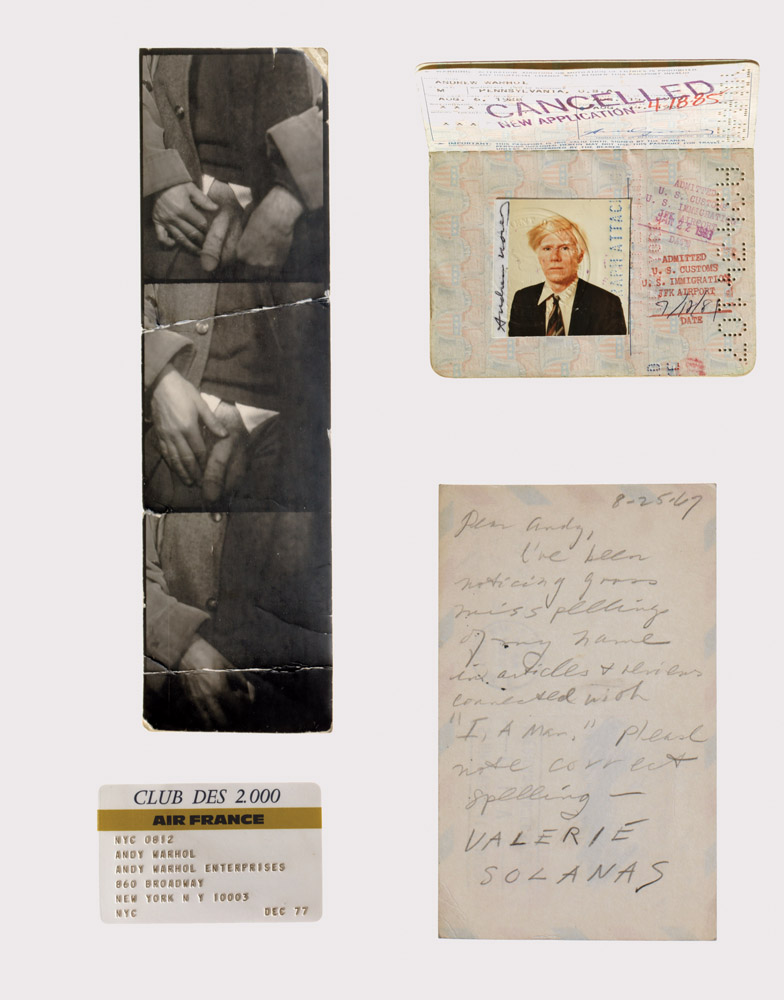 ANDREW WARHOL
M PENNSYLVANIA, U.S.A.
AUG. 6, 1928
CANCELLED
NEW APPLICATION
4-18-85
IMPORTANT: THIS PASSPORT IS NOT VALID UNTIL SIGNED BY THE BEARER
ADMITTED
U. S. CUSTOMS
U. S. IMMIGRATION
JFK AIRPORT
MAR 22 1981
DATE
ADMITTED
U. S. CUSTOMS
U. S. IMMIGRATION
JFK AIRPORT
DATE
8-25-67
Dear Andy,
I've been
noticing gross
misspellings
of my name
in articles & reviews
connected with
"I, A Man." Please
note correct
spelling —
VALERIE
SOLANAS
CLUB DES 2.000
AIR FRANCE
NYC 0812
ANDY WARHOL
ANDY WARHOL ENTERPRISES
860 BROADWAY
NEW YORK N Y 10003
NYC DEC 77